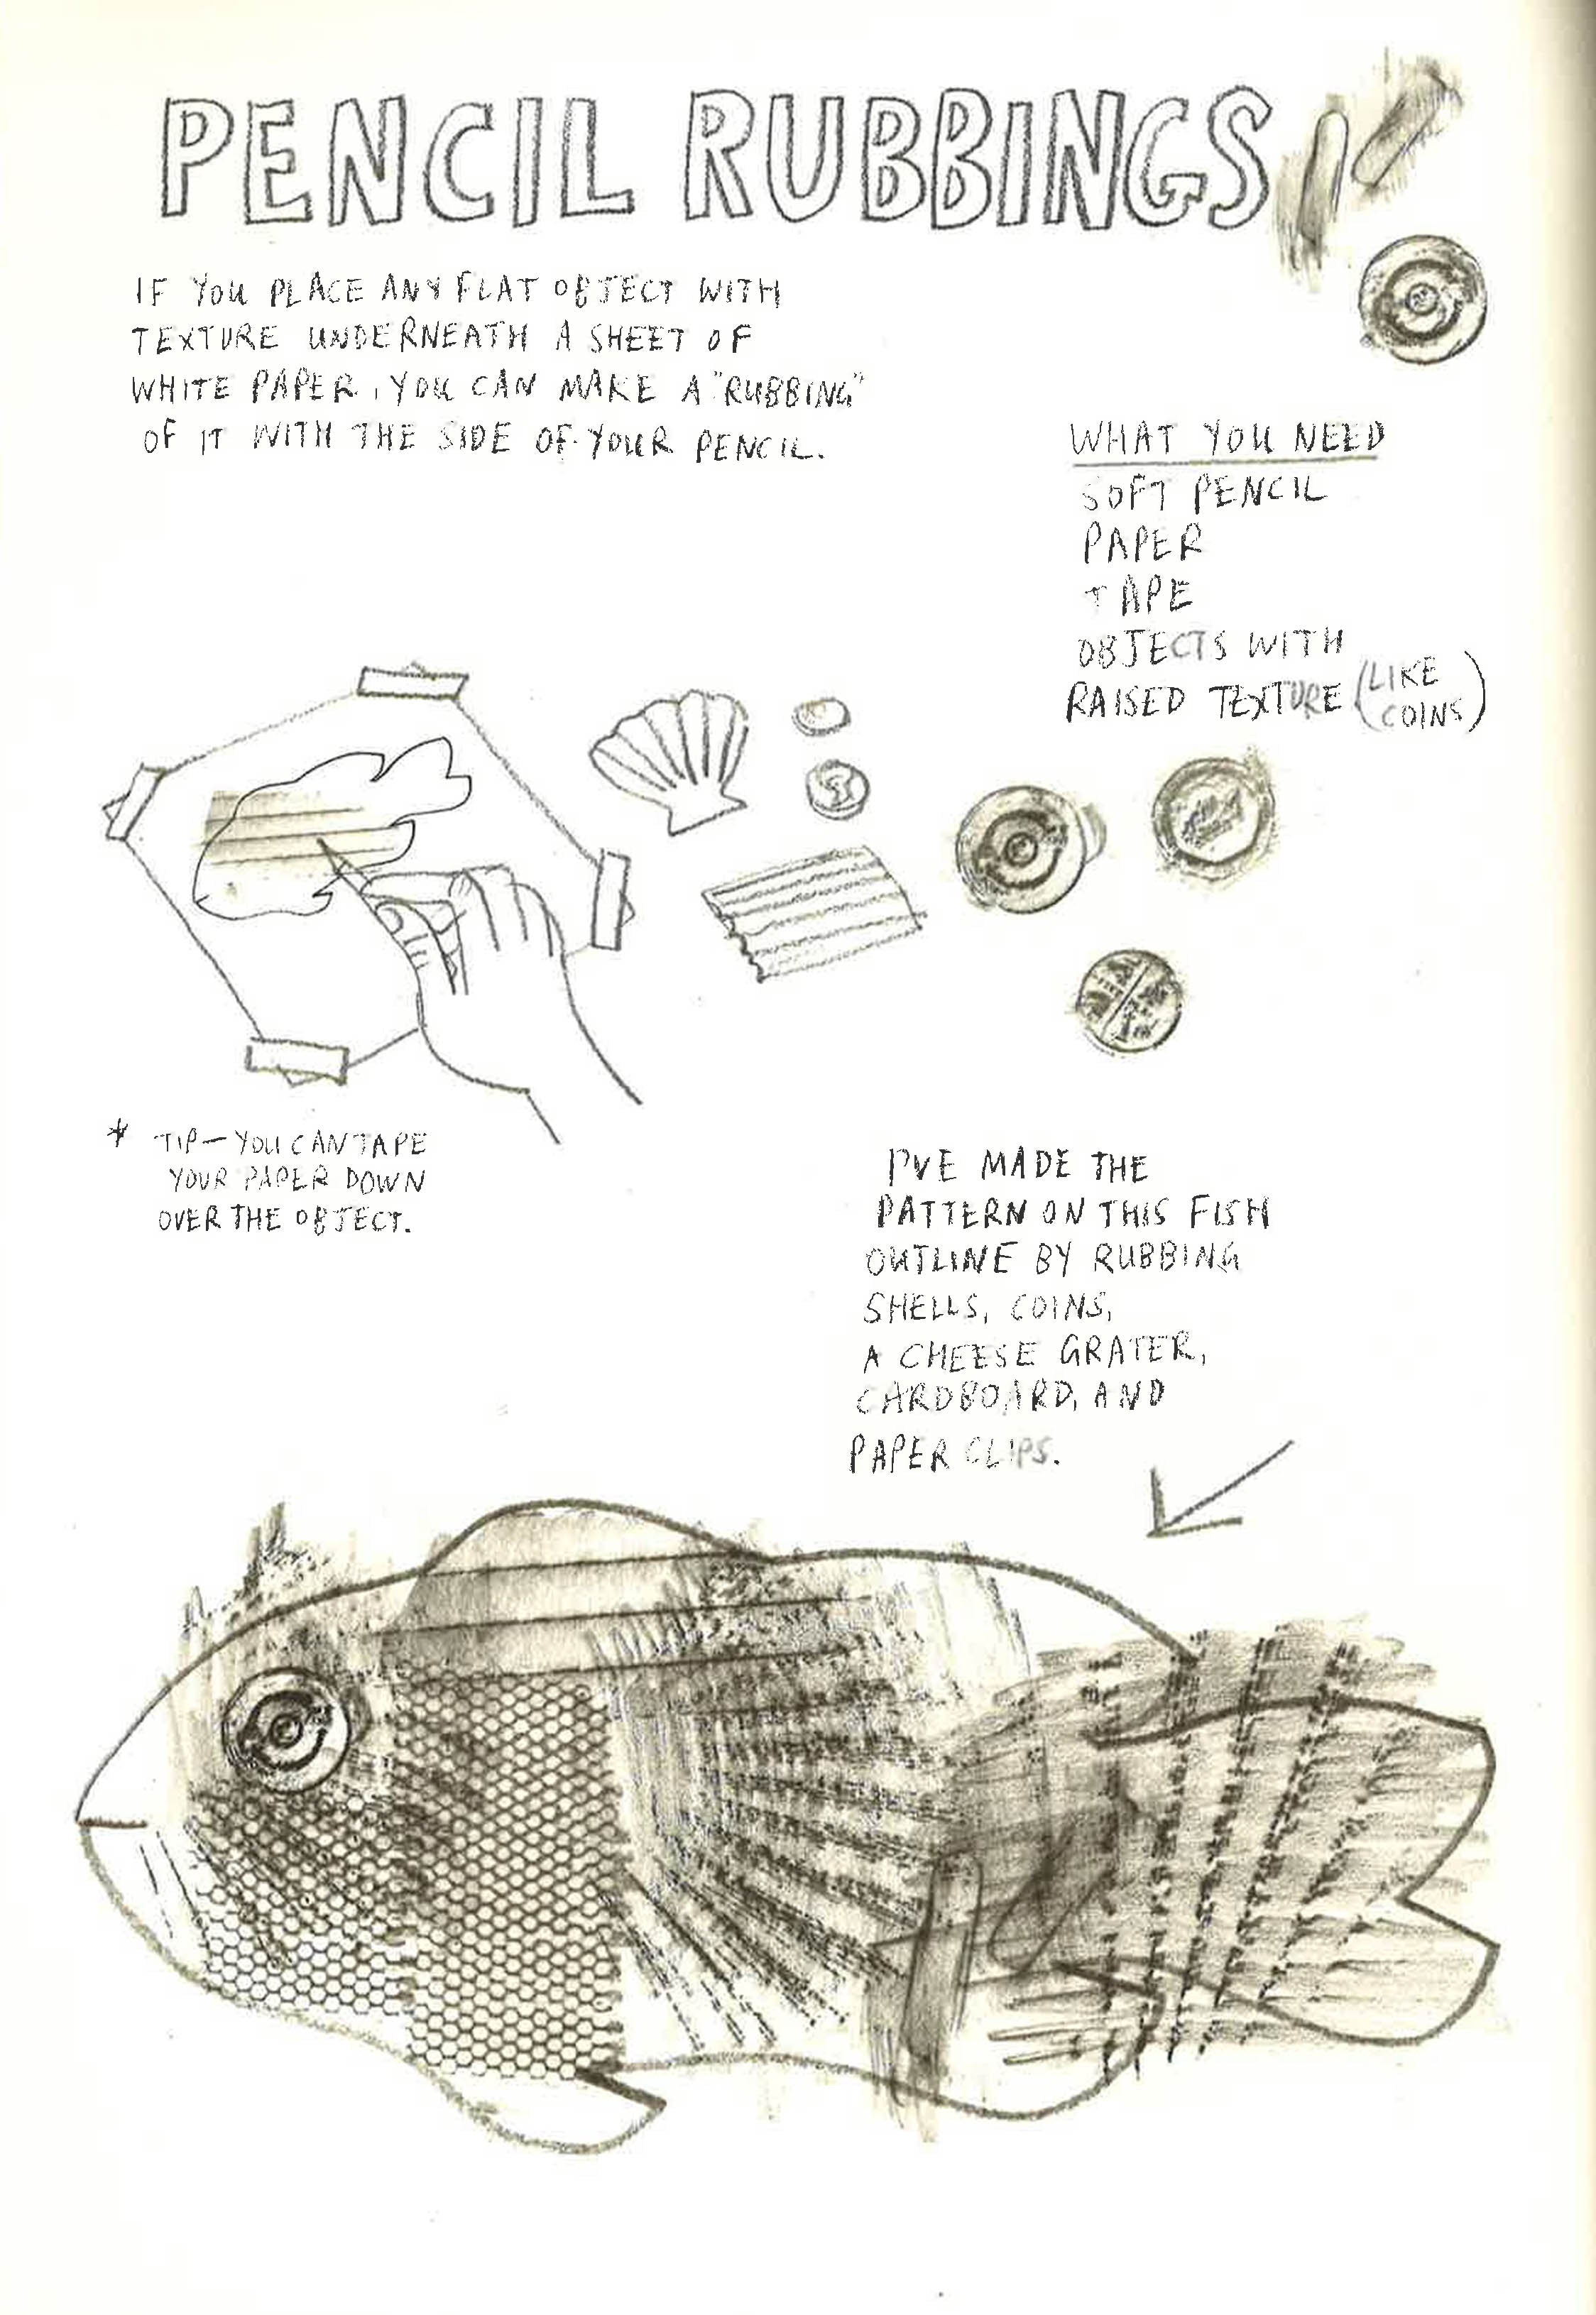 PENCIL RUBBINGS
IF YOU PLACE ANY FLAT OBJECT WITH
TEXTURE UNDERNEATH A SHEET OF
WHITE PAPER, YOU CAN MAKE A "RUBBING"
OF IT WITH THE SIDE OF YOUR PENCIL.
WHAT YOU NEED
SOFT PENCIL
PAPER
TAPE
OBJECTS WITH
RAISED TEXTURE (LIKE
COINS)
* TIP — YOU CAN TAPE
YOUR PAPER DOWN
OVER THE OBJECT.
I'VE MADE THE
PATTERN ON THIS FISH
OUTLINE BY RUBBING
SHELLS, COINS,
A CHEESE GRATER,
CARDBOARD, AND
PAPER CLIPS.